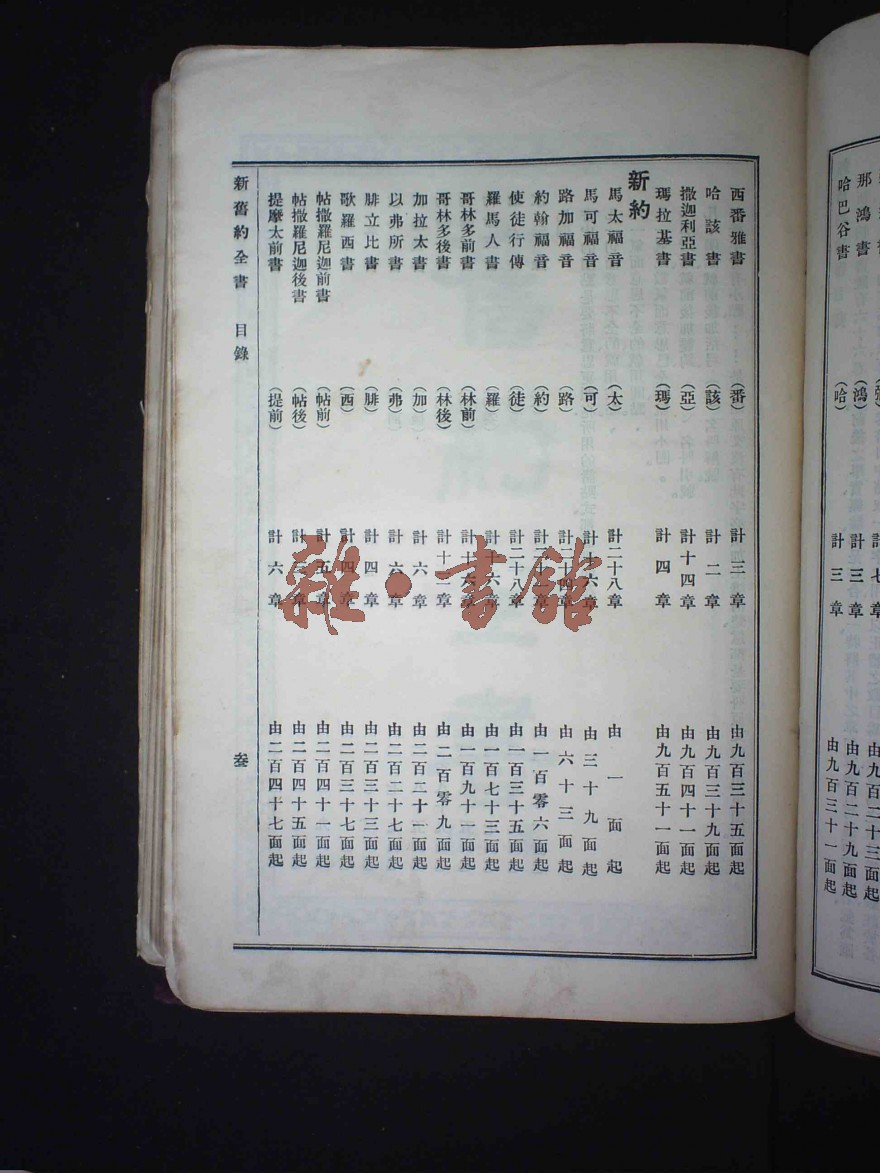 那鴻書 （鴻） 計三章 由九百二十九面起
哈巴谷書 （哈） 計三章 由九百三十一面起
西番雅書 （番） 計三章 由九百三十五面起
哈該書 （該） 計二章 由九百三十九面起
撒迦利亞書 （亞） 計十四章 由九百四十一面起
瑪拉基書 （瑪） 計四章 由九百五十一面起
新約
馬太福音 （太） 計二十八章 由一面起
馬可福音 （可） 計十六章 由三十九面起
路加福音 （路） 計二十四章 由六十三面起
約翰福音 （約） 計二十一章 由一百零六面起
使徒行傳 （徒） 計二十八章 由一百三十五面起
羅馬人書 （羅） 計十六章 由一百七十三面起
哥林多前書 （林前） 計十六章 由一百九十一面起
哥林多後書 （林後） 計十三章 由二百零九面起
加拉太書 （加） 計六章 由二百二十一面起
以弗所書 （弗） 計六章 由二百二十七面起
腓立比書 （腓） 計四章 由二百三十三面起
歌羅西書 （西） 計四章 由二百三十七面起
帖撒羅尼迦前書 （帖前） 計五章 由二百四十一面起
帖撒羅尼迦後書 （帖後） 計三章 由二百四十五面起
提摩太前書 （提前） 計六章 由二百四十七面起
新舊約全書 目錄 叁
雜·書館